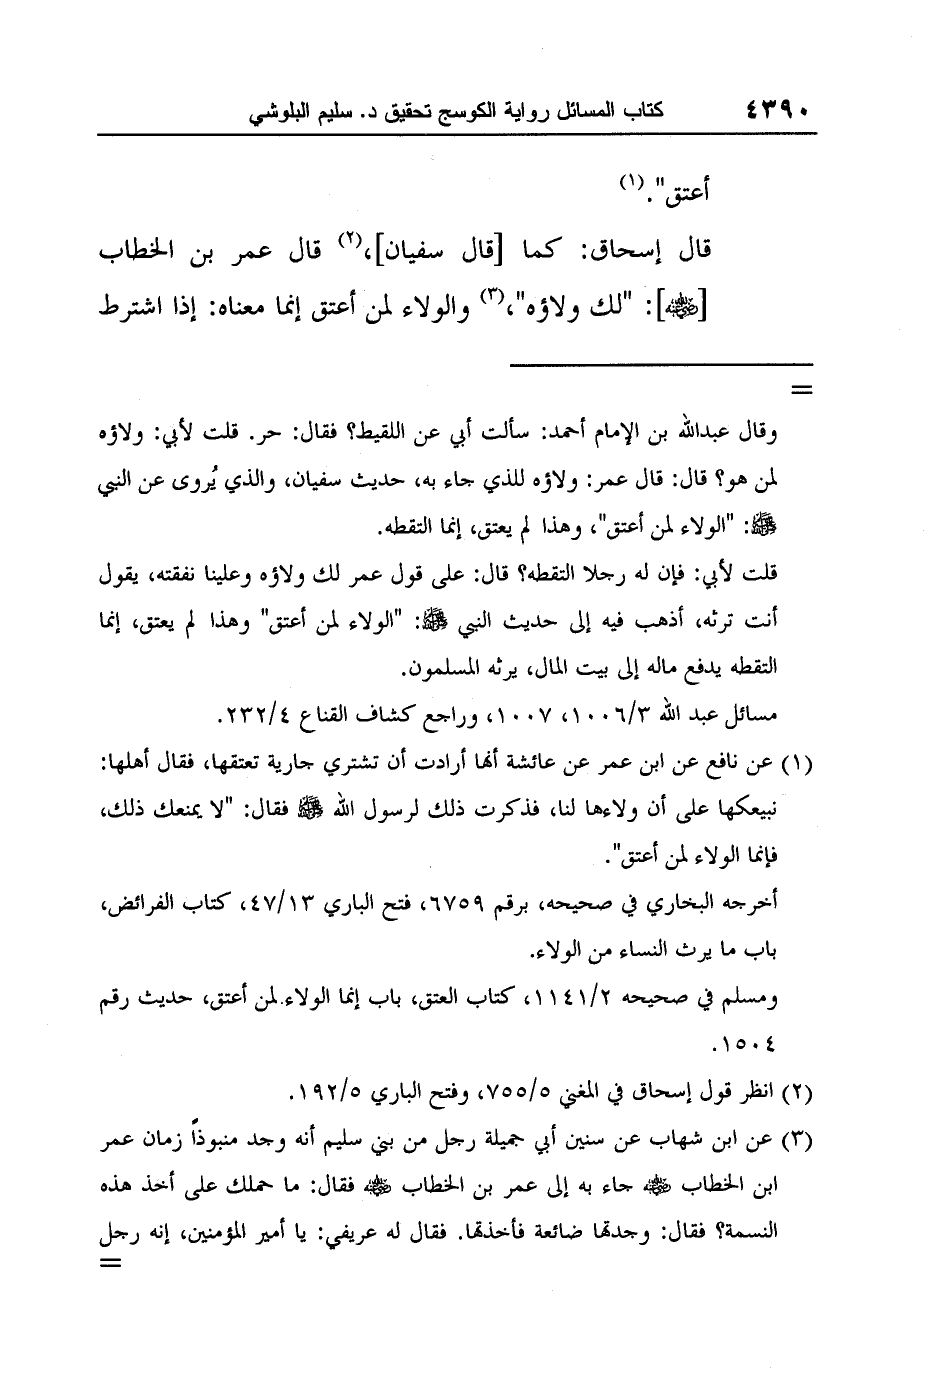 ٤٣٩٠ كتاب المسائل رواية الكوسج تحقيق د. سليم البلوشي
أعتق".(١)
قال إسحاق: كما [قال سفيان]،(٢) قال عمر بن الخطاب
[رضي الله عنه]: "لك ولاؤه"،(٣) والولاء لمن أعتق إنما معناه: إذا اشترط
=
وقال عبدالله بن الإمام أحمد: سألت أبي عن اللقيط؟ فقال: حر. قلت لأبي: ولاؤه
لمن هو؟ قال: قال عمر: ولاؤه للذي جاء به، حديث سفيان، والذي يُروى عن النبي
ﷺ: "الولاء لمن أعتق"، وهذا لم يعتق، إنما التقطه.
قلت لأبي: فإن له رجلا التقطه؟ قال: على قول عمر لك ولاؤه وعلينا نفقته، يقول
أنت ترثه، أذهب فيه إلى حديث النبي ﷺ: "الولاء لمن أعتق" وهذا لم يعتق، إنما
التقطه يدفع ماله إلى بيت المال، يرثه المسلمون.
مسائل عبد الله ١٠٠٦/٣، ١٠٠٧، وراجع كشاف القناع ٢٣٢/٤.
(١) عن نافع عن ابن عمر عن عائشة أنها أرادت أن تشتري جارية تعتقها، فقال أهلها:
نبيعكها على أن ولاءها لنا، فذكرت ذلك لرسول الله ﷺ فقال: "لا يمنعك ذلك،
فإنما الولاء لمن أعتق".
أخرجه البخاري في صحيحه، برقم ٦٧٥٩، فتح الباري ٤٧/١٣، كتاب الفرائض،
باب ما يرث النساء من الولاء.
ومسلم في صحيحه ١١٤١/٢، كتاب العتق، باب إنما الولاء لمن أعتق، حديث رقم
١٥٠٤.
(٢) انظر قول إسحاق في المغني ٧٥٥/٥، وفتح الباري ١٩٢/٥.
(٣) عن ابن شهاب عن سنين أبي جميلة رجل من بني سليم أنه وجد منبوذاً زمان عمر
ابن الخطاب رضي الله عنه جاء به إلى عمر بن الخطاب رضي الله عنه فقال: ما حملك على أخذ هذه
النسمة؟ فقال: وجدتها ضائعة فأخذتها. فقال له عريفي: يا أمير المؤمنين، إنه رجل
=